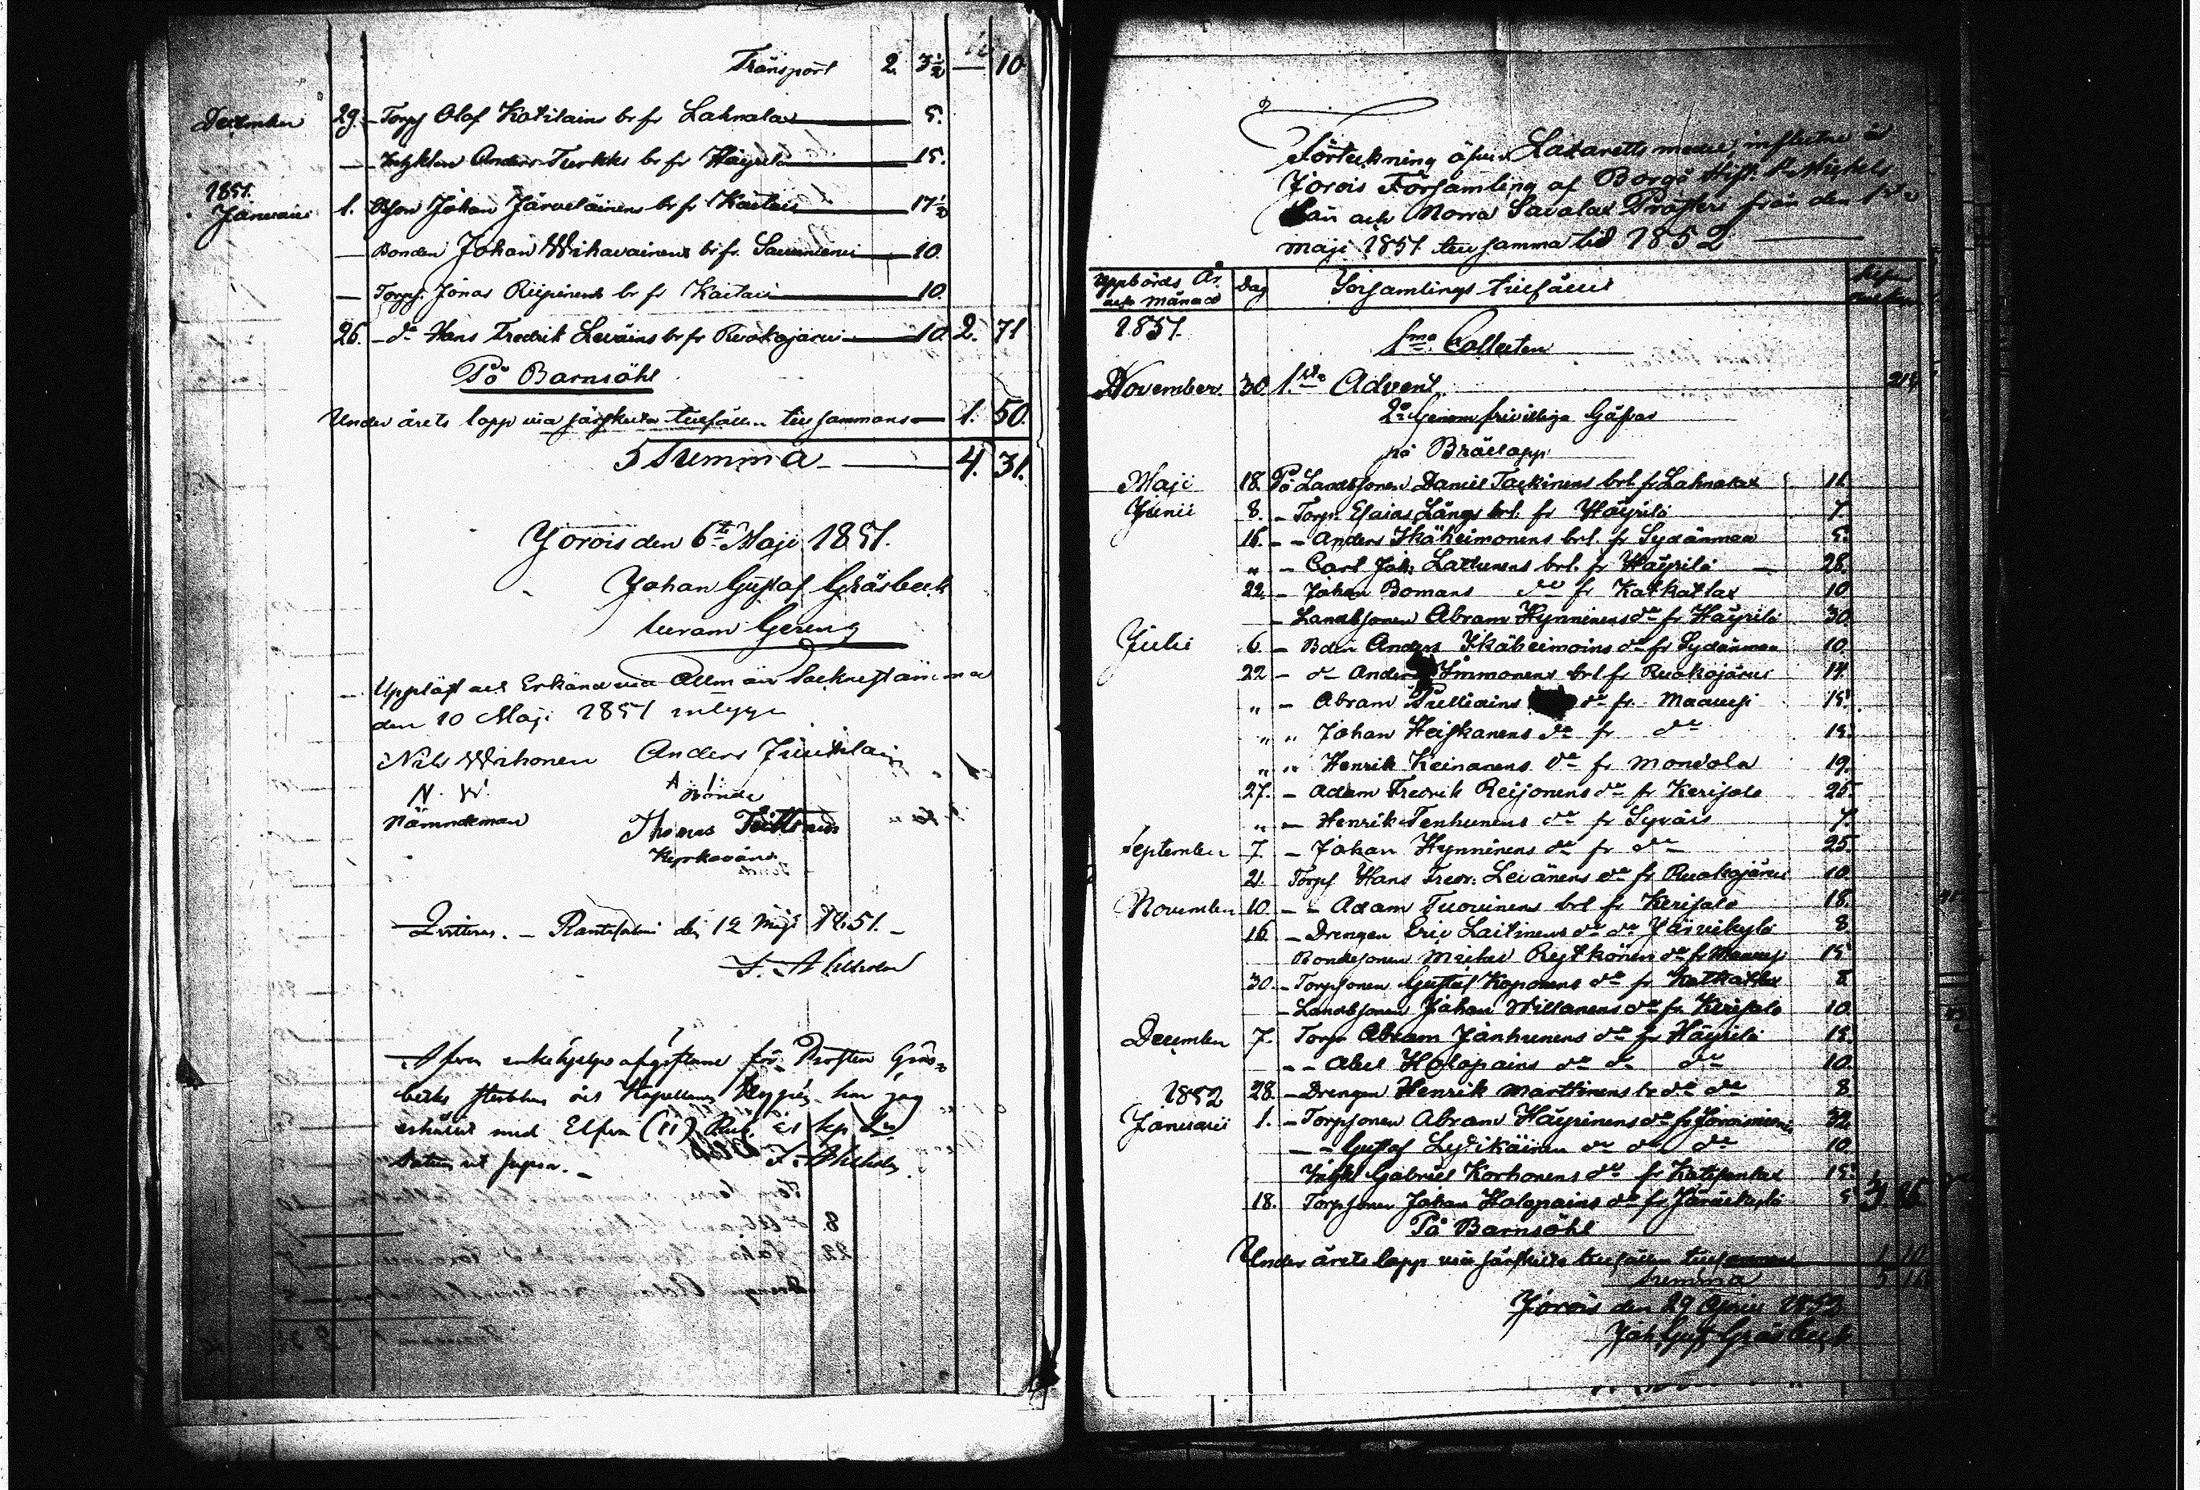 Transport 2. 3½ — 10
December 29. Torp Olof Katilains br fr Lahnalax 5.
— Anders Turkki br fr Häyrilä 15.
1851.
Januarii 1. Johan Järveläinens br fr Kaitais 17½
— Bonden Johan Wihavainens br fr 10.
— Torp. Jonas Riipinens br fr Kaitais 10.
26. — do Hans Fredrik Levains br fr Ruokojärvi 10 2. 71
På Barnsöhl
Under årets lopp via särskilta tillfällen tillsammans 1. 50.
Summa 4. 31.
Jorois den 6te Maji 1851.
Johan Gustaf Gråsbeck
Uppläst och Erkänd vid Allmän Sockne
den 10 Maji 1851 intyga
Nils Wihonen Anders
N. W. A
Nämndeman Thomas
Kyrkovärd
Qvitteras. — Rantasalmi den 12 Maji 1851. —
för Prosten Grås-
becks sterbhus och Kapellan har jag
erhållit med Elfva (11) Rub. kop Sr
Datum ut supra. —
Förteckning öfver Lazaretts medel influtne i
Jorois Församling af Borgå Stift, St Michels
Län och Norra Savolax Prosteri från den 1sta
Maji 1851 till samma tid 1852
Uppbörds År och Månad Dag Församlings tillfälle
1851. 1mo Collecten
November 30 1sta Advent
2o Genom frivilliga Gåfvor
på Brölopp
Maji 18. På Landbsonen Daniel Taskinens brl fr Lahnalax 11.
Junii 8. — Torp. Esaias Långs brl. fr Häyrilä 7.
16. — — Anders Ikäheimonens brl. fr Sydänmaa 5.
„ — Carl Joh: Lattunens brl. fr Häyrilä — 28.
22. — Johan Bomans do fr Katkatlax 10
— Landbsonen Abram Hynninens do fr Häyrilä 30.
Julii 6. — Bden Anders Ikäheimoins do fr Sydänmaa 10.
22 — do Anders Immonens brl fr Ruokojärvi 14.
„ — Abram Pulliains do fr. Maavesi 15.
„ „ Johan Heiskanens do fr do 15.
„ „ Henrik Keinanens do fr Mondola 19.
27. — Adam Fredrik Reijonens do fr Kerisalo 25.
„ — Henrik Tenhunens do fr Syväis 7.
September 7. — Johan Hynninens do fr do 25.
21. Torp Hans Fredr: Levänens do fr Ruokojärvi 10.
November 10. — — Adam Tuovinens brl fr Kerisalo 18.
16 — Drengen Eric Laitinens do do Järvikylä 8.
Bondesonen Michel Reijkönens do fr Maavesi 15
30. — Torpsonen Gustaf Koponens do fr Katkatlax 8
— Landbsonen Johan Willanens do fr Kerisalo 10.
December 7. Torp Abram Janhunens do fr Häyrilä 15.
— — Abel Holopains do do do 10.
1852 28. — Drengen Henrik Marttinens br do do 8.
Januarii 1. — Torpsonen Abram Häyrinens do fr Joroisniemi 32.
— — Gustaf Lydikäinen do do do 10.
Gabriel Korhonens do fr 15.
18. Torpsonen Johan Holopains do fr Järvikylä 5
På Barnsöhl
Under årets lopp via särskilta tillfällen tillsammans
Summa
Jorois den 29 April 1852
Joh Gust Gråsbeck